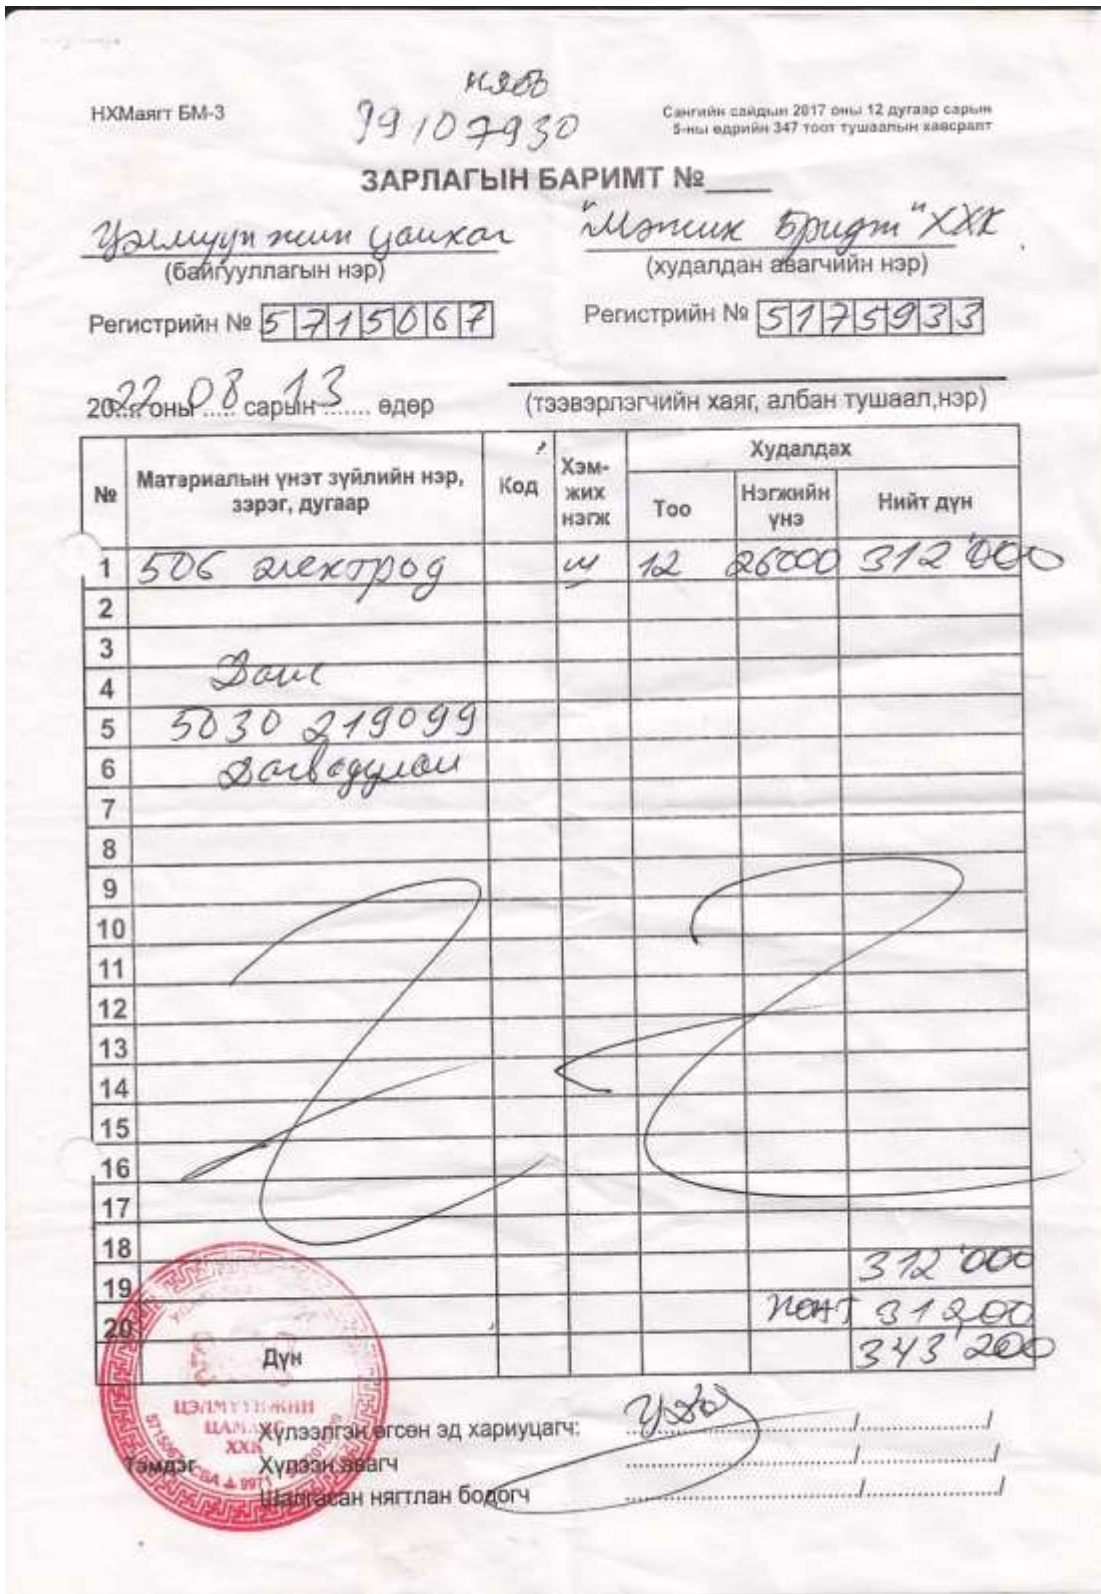 нябо
НХМаягт БМ-3
99107930
Сангийн сайдын 2017 оны 12 дугаар сарын
5-ны өдрийн 347 тоот тушаалын хавсралт
ЗАРЛАГЫН БАРИМТ №____
"Мэжик Бридж" ХХК
(байгууллагын нэр)
(худалдан авагчийн нэр)
Регистрийн № 5715067
Регистрийн № 5175933
2022 оны 08 сарын 13 өдөр
(тээвэрлэгчийн хаяг, албан тушаал,нэр)
№ Материалын үнэт зүйлийн нэр, зэрэг, дугаар Код Хэм-жих нэгж Худалдах
Тоо Нэгжийн үнэ Нийт дүн
1 506 электрод ш 12 26000 312'000
2
3
4 Данс
5 5030 219099
6
7
8
9
10
11
12
13
14
15
16
17
18 312'000
19 НӨАТ 31200
20 343'200
Дүн
ЦЭЛМҮҮНЖИН
ХХК
Хүлээлгэн өгсөн эд хариуцагч: ............/............/
Тэмдэг Хүлээн авагч ............/............/
Шалгасан нягтлан бодогч ............/............/